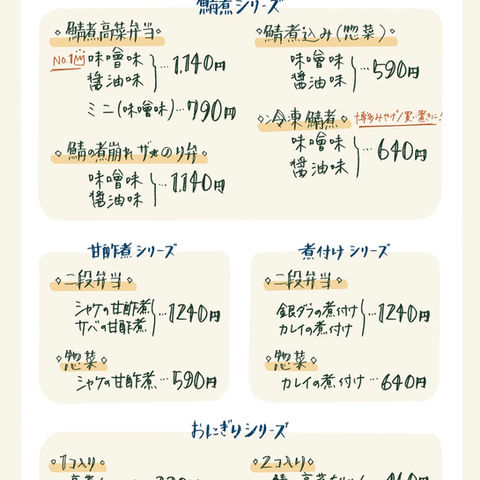 鯖煮シリーズ
鯖煮高菜弁当
No.1
味噌味
醤油味
…1,140円
ミニ(味噌味)…790円
鯖の煮崩れザ★のり弁
味噌味
醤油味
…1,140円
鯖煮込み(惣菜)
味噌味
醤油味
…590円
冷凍鯖煮
味噌味
醤油味
…640円
甘酢煮シリーズ
二段弁当
シャケの甘酢煮
サバの甘酢煮
…1240円
惣菜
シャケの甘酢煮…590円
煮付けシリーズ
二段弁当
銀ダラの煮付け
カレイの煮付け
…1240円
惣菜
カレイの煮付け…640円
おにぎりシリーズ
1コ入り
2コ入り